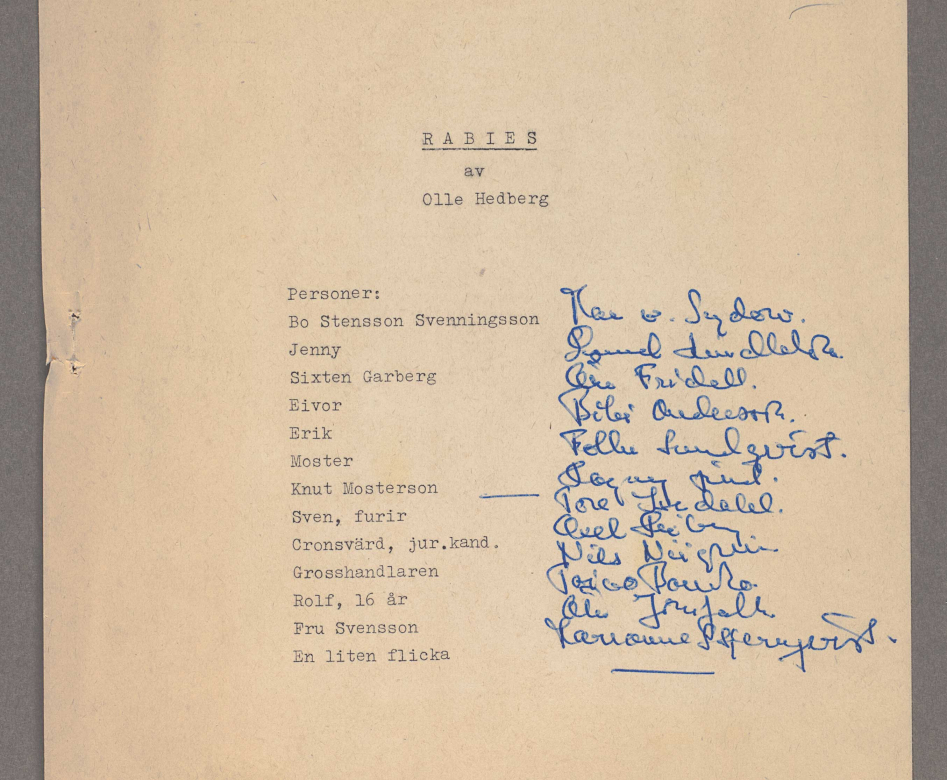 R A B I E S
av
Olle Hedberg
Personer:
Bo Stensson Svenningsson Max v. Sydow.
Jenny Gunnel Lindblom.
Sixten Garberg Åke Fridell.
Eivor Bibi Andersson.
Erik Folke Sundqvist.
Moster Dagny Lind.
Knut Mosterson — Tore
Sven, furir Axel
Cronsvärd, jur.kand. Nils
Grosshandlaren Toivo Pawlo.
Rolf, 16 år Åke Jörnfalk
Fru Svensson Marianne
En liten flicka